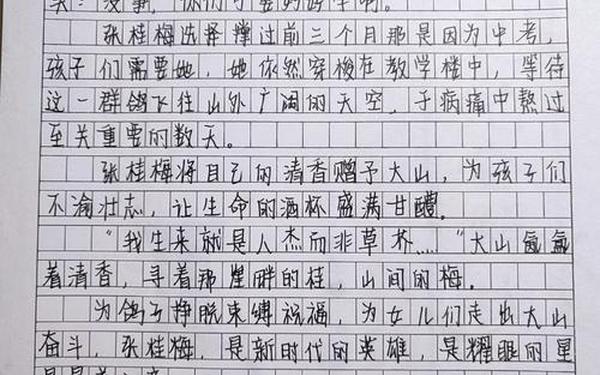 没事，你们
张桂梅选择撑过前三个月那是因为中考，
孩子们需要她，她依然穿梭在教学楼中，等待
这一群鸽飞往山外广阔的天空，于病痛中熬过
至关重要的数天。
张桂梅将自己的清香赠予大山，为孩子们
不渝壮志，让生命的酒杯盛满甘醴。
“我生来就是人杰而非草芥....”大山氤氲
着清香，寻着那崖畔的桂，山间的梅。
为鸽子挣脱束缚祝福，为女儿们走出大山
奋斗，张桂梅，是新时代的英雄，是耀眼的星